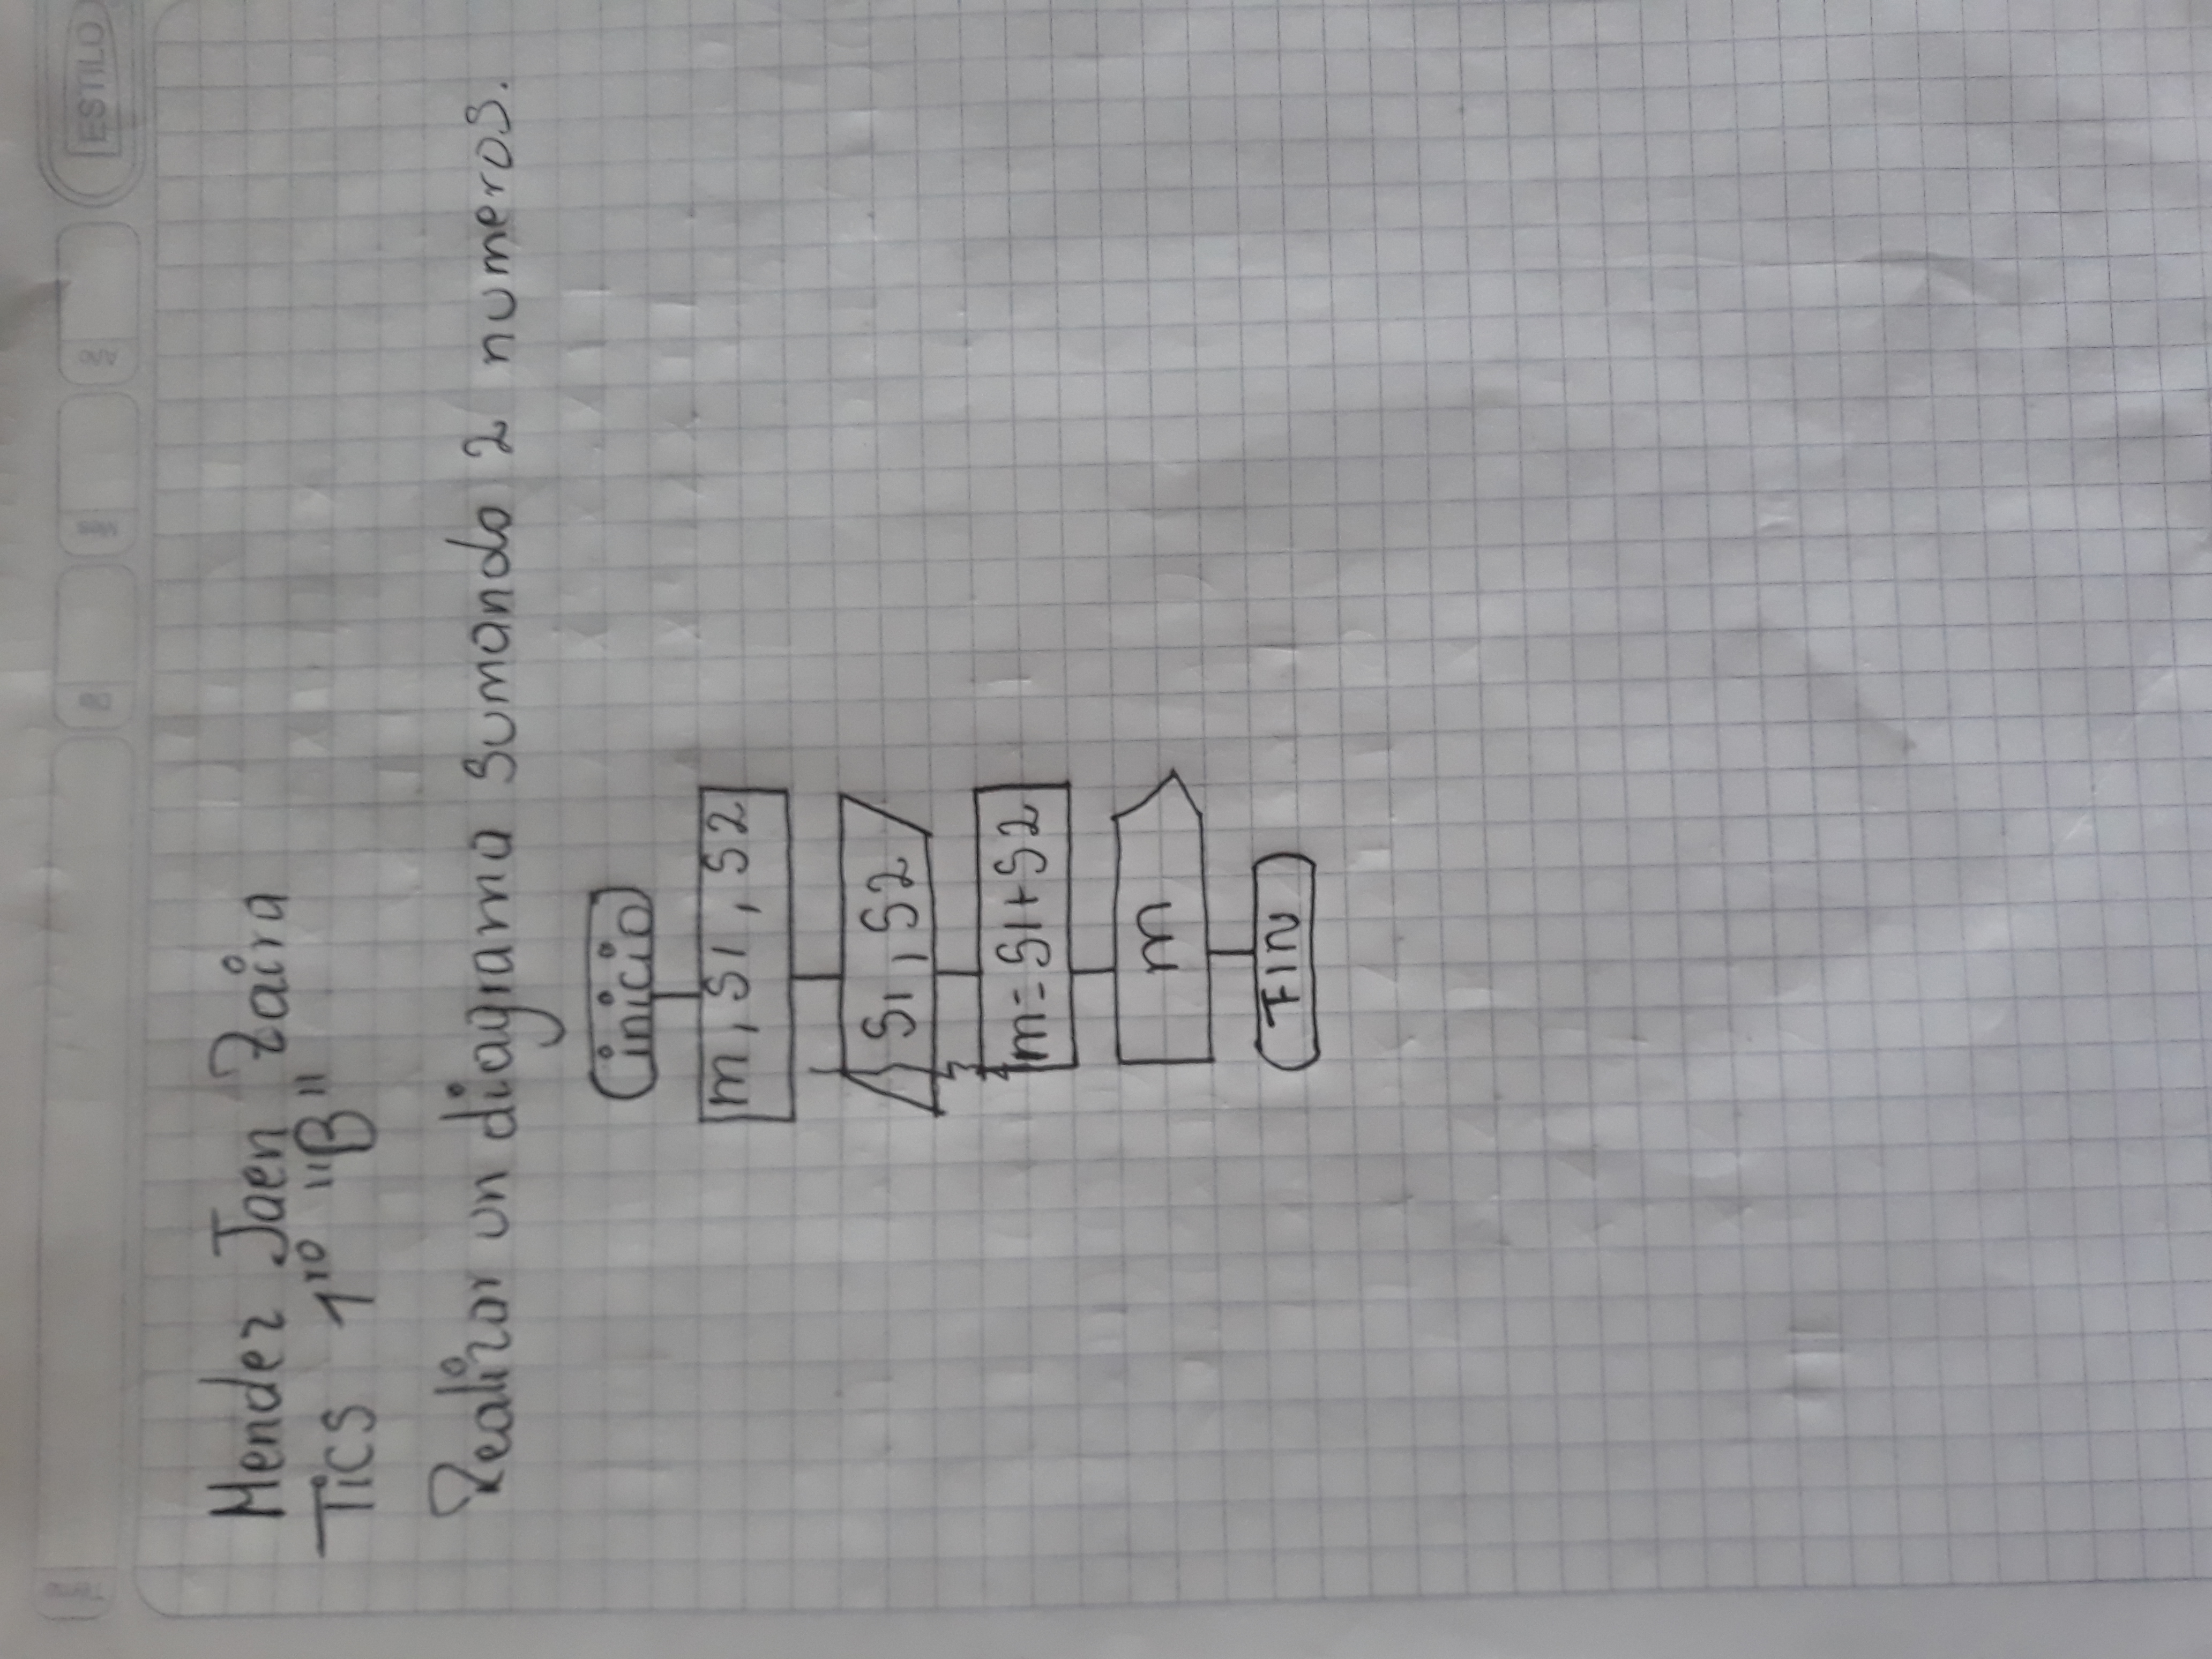 Tema
Dia
Mes
Año
ESTILO
Mendez Jaen Zaira
Tics 1ro "B"
Realizar un diagrama sumando 2 numeros.
inicio
m, S1, S2
S1, S2
m= S1+S2
m
FIN